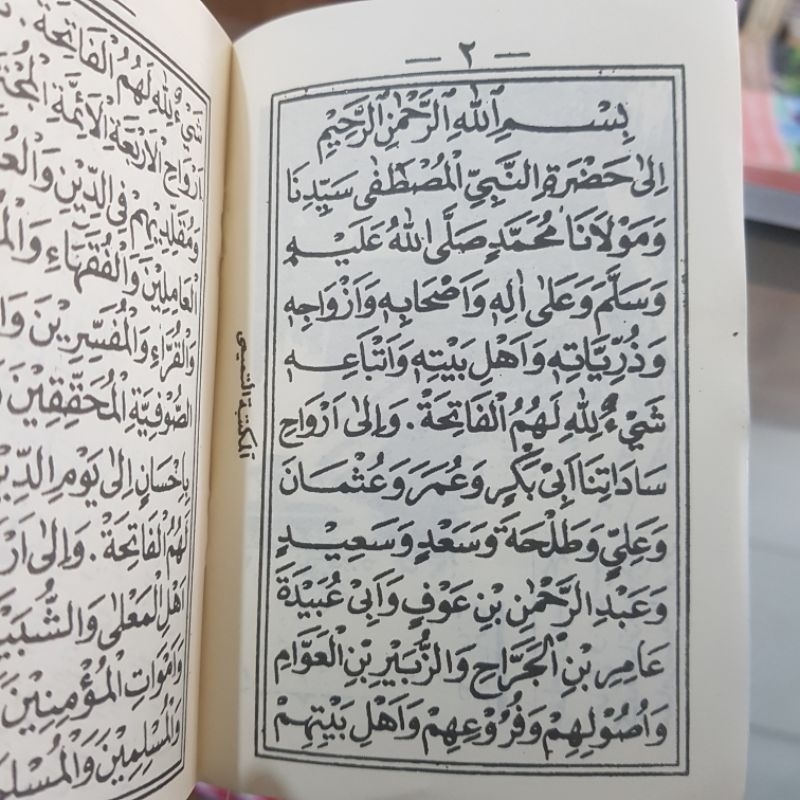 — ٢ —
بِسْمِ اللهِ الرَّحْمٰنِ الرَّحِيْمِ
اِلىٰ حَضْرَةِ النَّبِيِّ الْمُصْطَفٰى سَيِّدِنَا
وَمَوْلَانَا مُحَمَّدٍ صَلَّى اللهُ عَلَيْهِ
وَسَلَّمَ وَعَلىٰ اٰلِهِ وَاَصْحَابِهِ وَاَزْوَاجِهِ
وَذُرِّيَّاتِهِ وَاَهْلِ بَيْتِهِ وَاَتْبَاعِهِ
شَيْءٌ لِلّٰهِ لَهُمُ الْفَاتِحَةْ . وَاِلىٰ اَرْوَاحِ
سَادَاتِنَا اَبِيْ بَكْرٍ وَعُمَرَ وَعُثْمَانَ
وَعَلِيٍّ وَطَلْحَةَ وَسَعْدٍ وَسَعِيْدٍ
وَعَبْدِ الرَّحْمٰنِ بْنِ عَوْفٍ وَاَبِيْ عُبَيْدَةَ
عَامِرِ بْنِ الْجَرَّاحِ وَالزُّبَيْرِ بْنِ الْعَوَّامِ
وَاُصُوْلِهِمْ وَفُرُوْعِهِمْ وَاَهْلِ بَيْتِهِمْ
شَيْءٌ لِلّٰهِ لَهُمُ الْفَاتِحَةْ .
اَرْوَاحِ الْاَرْبَعَةِ الْاَئِمَّةِ
وَمُقَلِّدِيْهِمْ فِى الدِّيْنِ
الْعَامِلِيْنَ وَالْفُقَهَاءِ
وَالْقُرَّاءِ وَالْمُفَسِّرِيْنَ
الصُّوْفِيَّةِ الْمُحَقِّقِيْنَ
بِاِحْسَانٍ اِلىٰ يَوْمِ
لَهُمُ الْفَاتِحَةْ . وَاِلىٰ
اَهْلِ الْمَعْلىٰ
وَاَمْوَاتِ الْمُؤْمِنِيْنَ
وَالْمُسْلِمِيْنَ